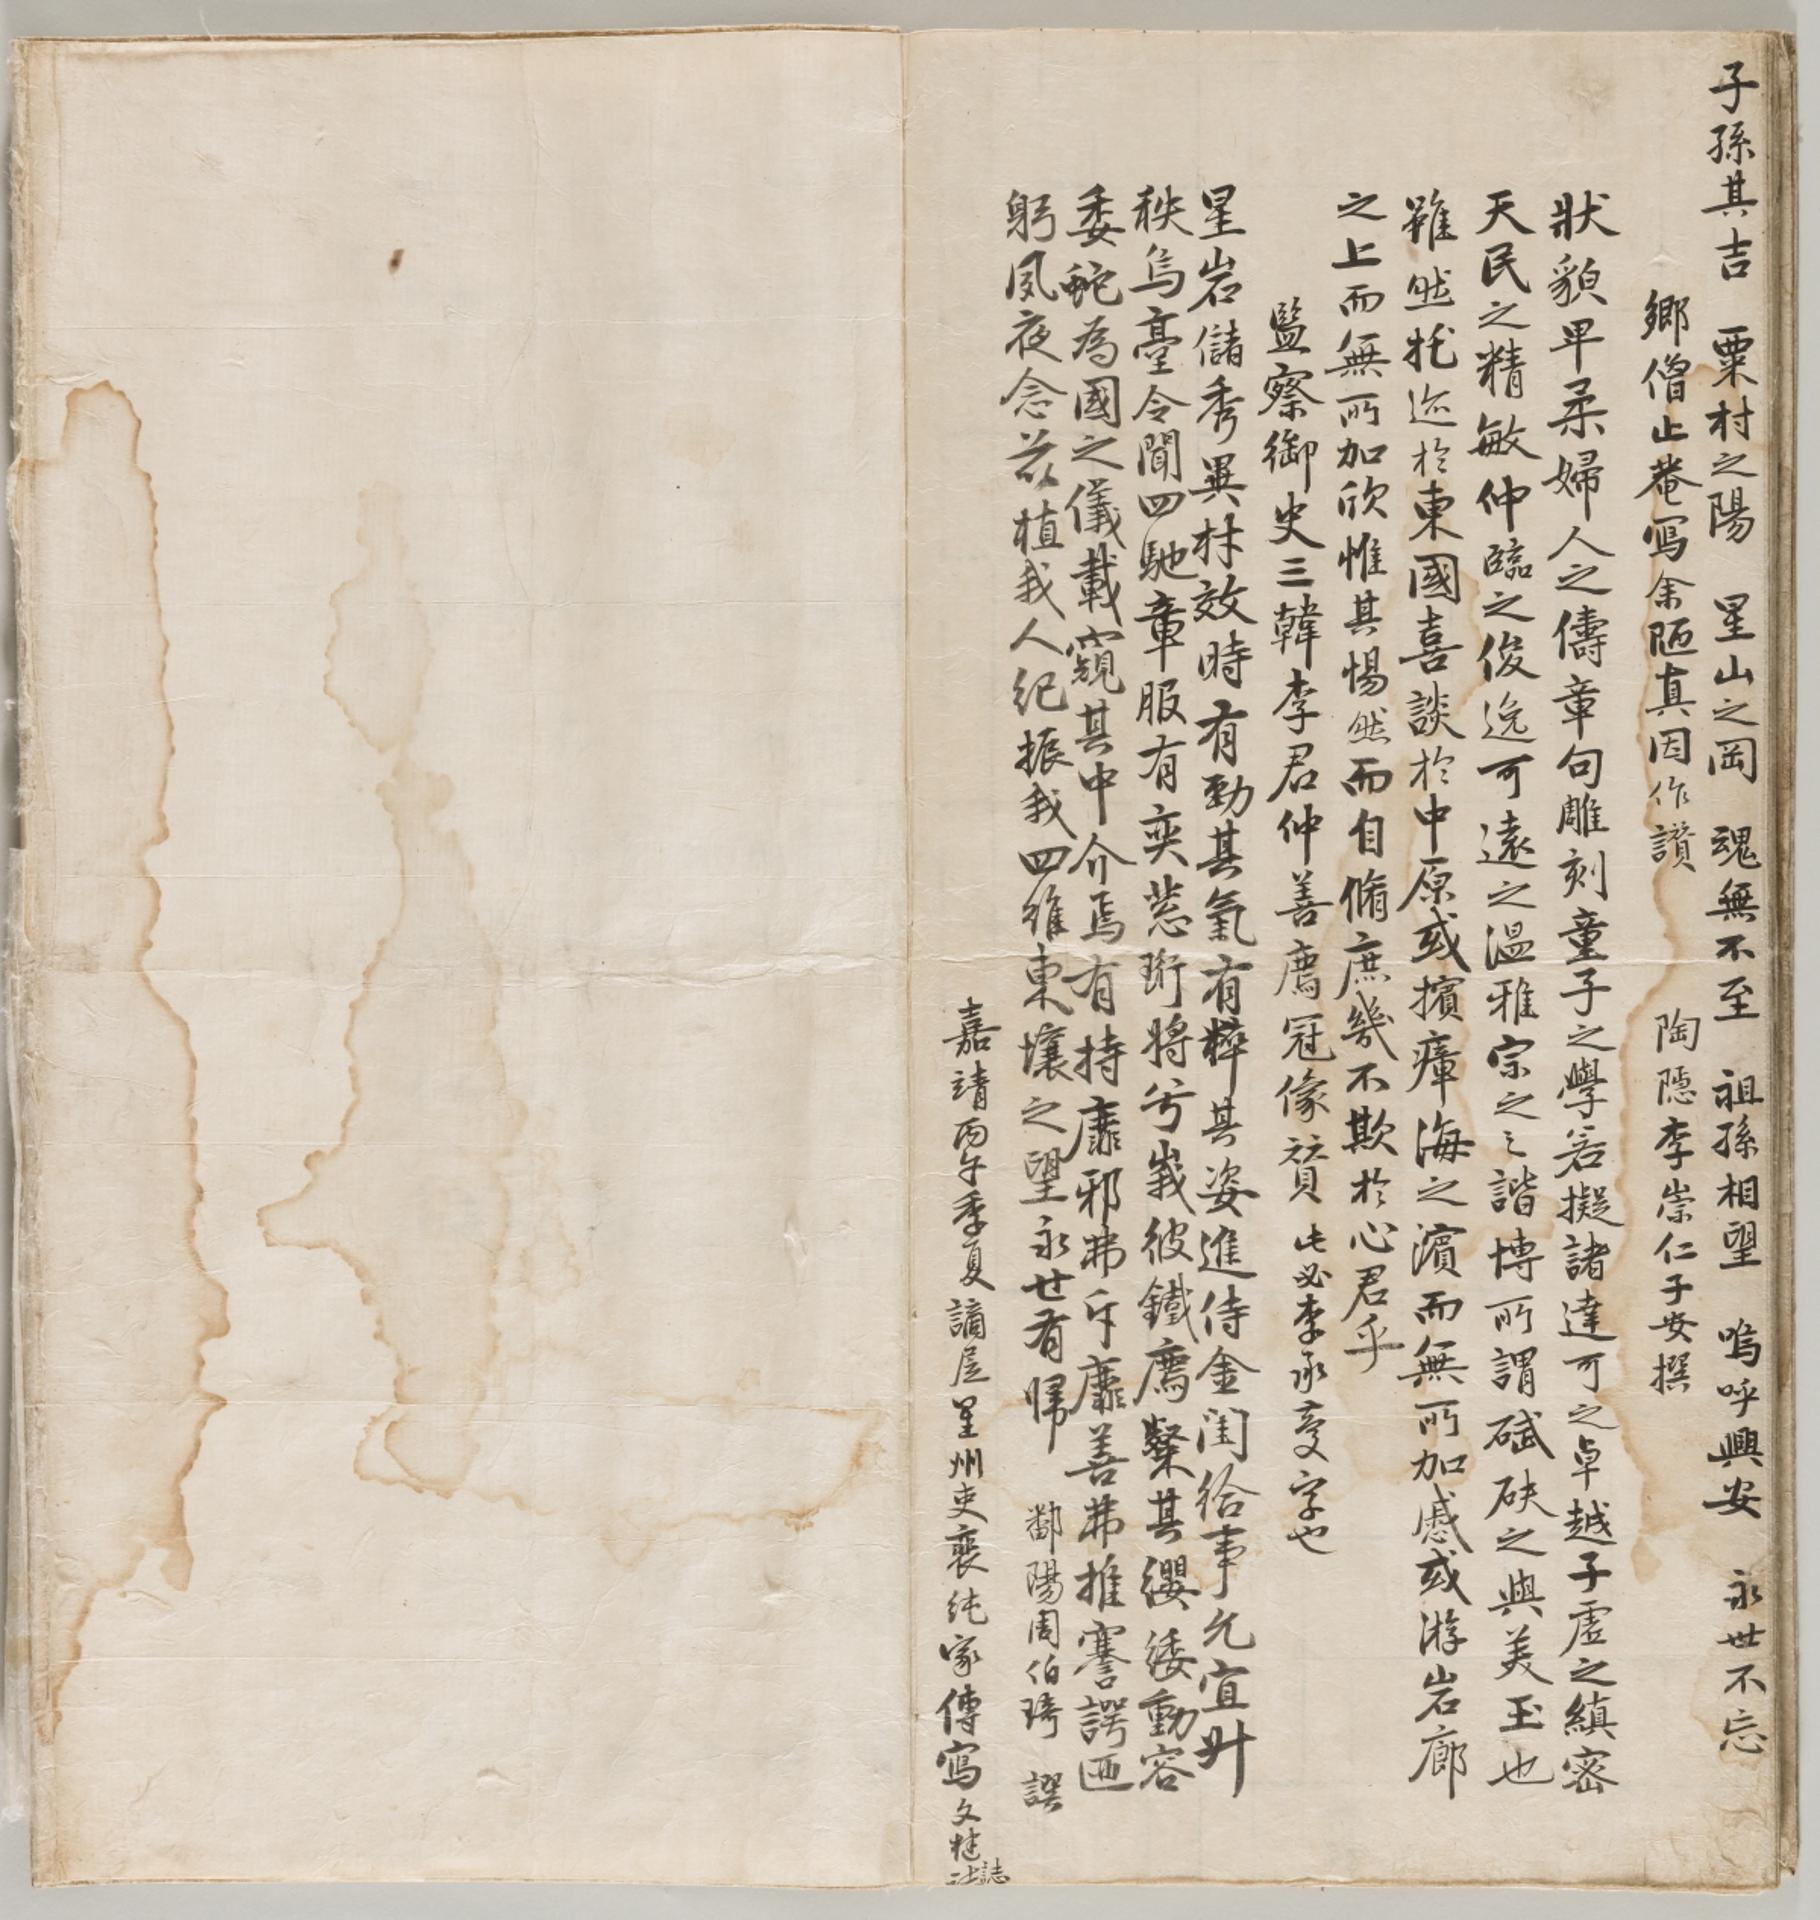 子孫其吉 粟村之陽 星山之岡 魂無不至 祖孫相望 嗚呼興安 永世不忘
鄉僧止菴寫余陋真因作讚 陶隱李崇仁子安撰
狀貌早柔婦人之儔章句雕刻童子之學若擬諸達可之卓越子虛之縝密
天民之精敏仲臨之俊逸可遠之溫雅宗之之諧博所謂碔砆之與美玉也
雖然托迹於東國喜談於中原或擯瘴海之濱而無所加慼或游岩廊
之上而無所加欣惟其惕然而自脩庶幾不欺於心君乎
監察御史三韓李君仲善廌冠像贊 此必李承
星岩儲秀異材效時有勁其氣有粹其姿進侍金閨給事允宜升
秩烏臺令聞四馳章服有奕蔥珩將兮峩彼鐵廌繄其纓緌動容
委蛇為國之儀載窺其中介焉有持靡邪弗斥靡善弗推謇諤匪
躬夙夜念茲植我人紀振我四維東壤之望永世有歸 鄱陽周伯琦 譔
嘉靖丙午季夏謫居星州吏裵純家傳寫文楗 誌